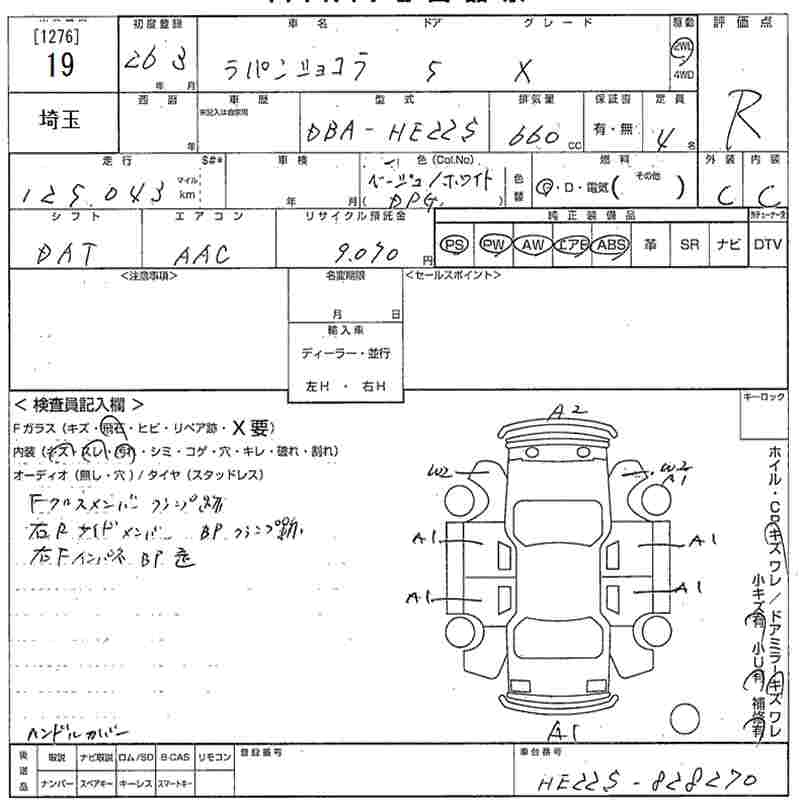 [1276]
19
初度登録
26 3
年 月
車名
ドア
グレード
ラパンショコラ 5 X
駆動
2WD
4WD
評価点
R
埼玉
西暦
年
車歴
未記入は自家用
型式
DBA-HE22S
排気量
660 cc
保証書
有・無
定員
4 名
走行
$#*
マイル
125.043 km
車検
年 月
色(Col.No)
ベージュ/ホワイト
( )
色替
燃料
G・D・電気( その他 )
外装
C
内装
C
シフト
DAT
エアコン
AAC
リサイクル預託金
9.090 円
純正装備品
PS PW AW エアB ABS 革 SR ナビ
DTV
<注意事項>
名変期限
月 日
輸入車
ディーラー・並行
左H ・ 右H
<セールスポイント>
キーロック
<検査員記入欄>
Fガラス(キズ・飛石・ヒビ・リペア跡・X要)
内装(キズ・スレ・汚れ・シミ・コゲ・穴・キレ・破れ・割れ)
オーディオ(無し・穴)/タイヤ(スタッドレス)
Fクロスメンバー クランプ跡
右Rサイドメンバー BPクランプ跡
右Fインパネ BP
ハンドルカバー
A2
W2
W2
A1
A1
A1
A1
A1
A1
ホイル・CPキズワレ/ドアミラーキズワレ
小キズ有 小U有 補修有
後送品
取説 ナビ取説 ロム/SD B-CAS リモコン
ナンバー スペアキー キーレス スマートキー
登録番号
車台番号
HE22S-828270